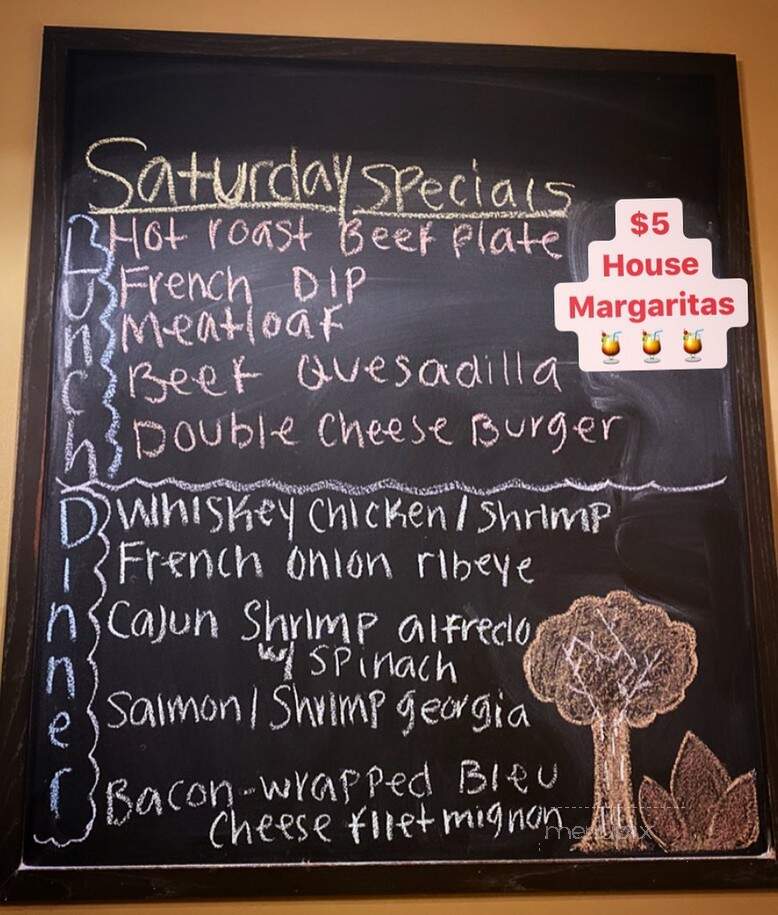 Saturday Specials
Lunch
Hot roast Beef Plate
French DIP
Meatloaf
Beef Quesadilla
Double Cheese Burger
$5
House
Margaritas
🍹 🍹 🍹
Dinner
Whiskey Chicken/Shrimp
French onion ribeye
Cajun Shrimp alfredo
w/ spinach
Salmon/Shrimp georgia
Bacon-wrapped Bleu
Cheese filet mignon
menupix